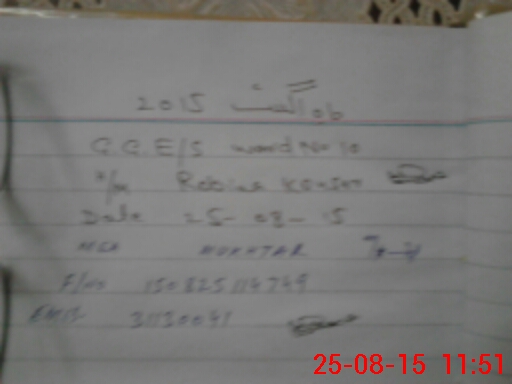 ماہ اگست 2015
G.G.E/S ward No 10
Robina Kousar
Date 25-08-15
MEA MUKHTAR
F/no 150825114749
EMIS 31130041
25-08-15 11:51